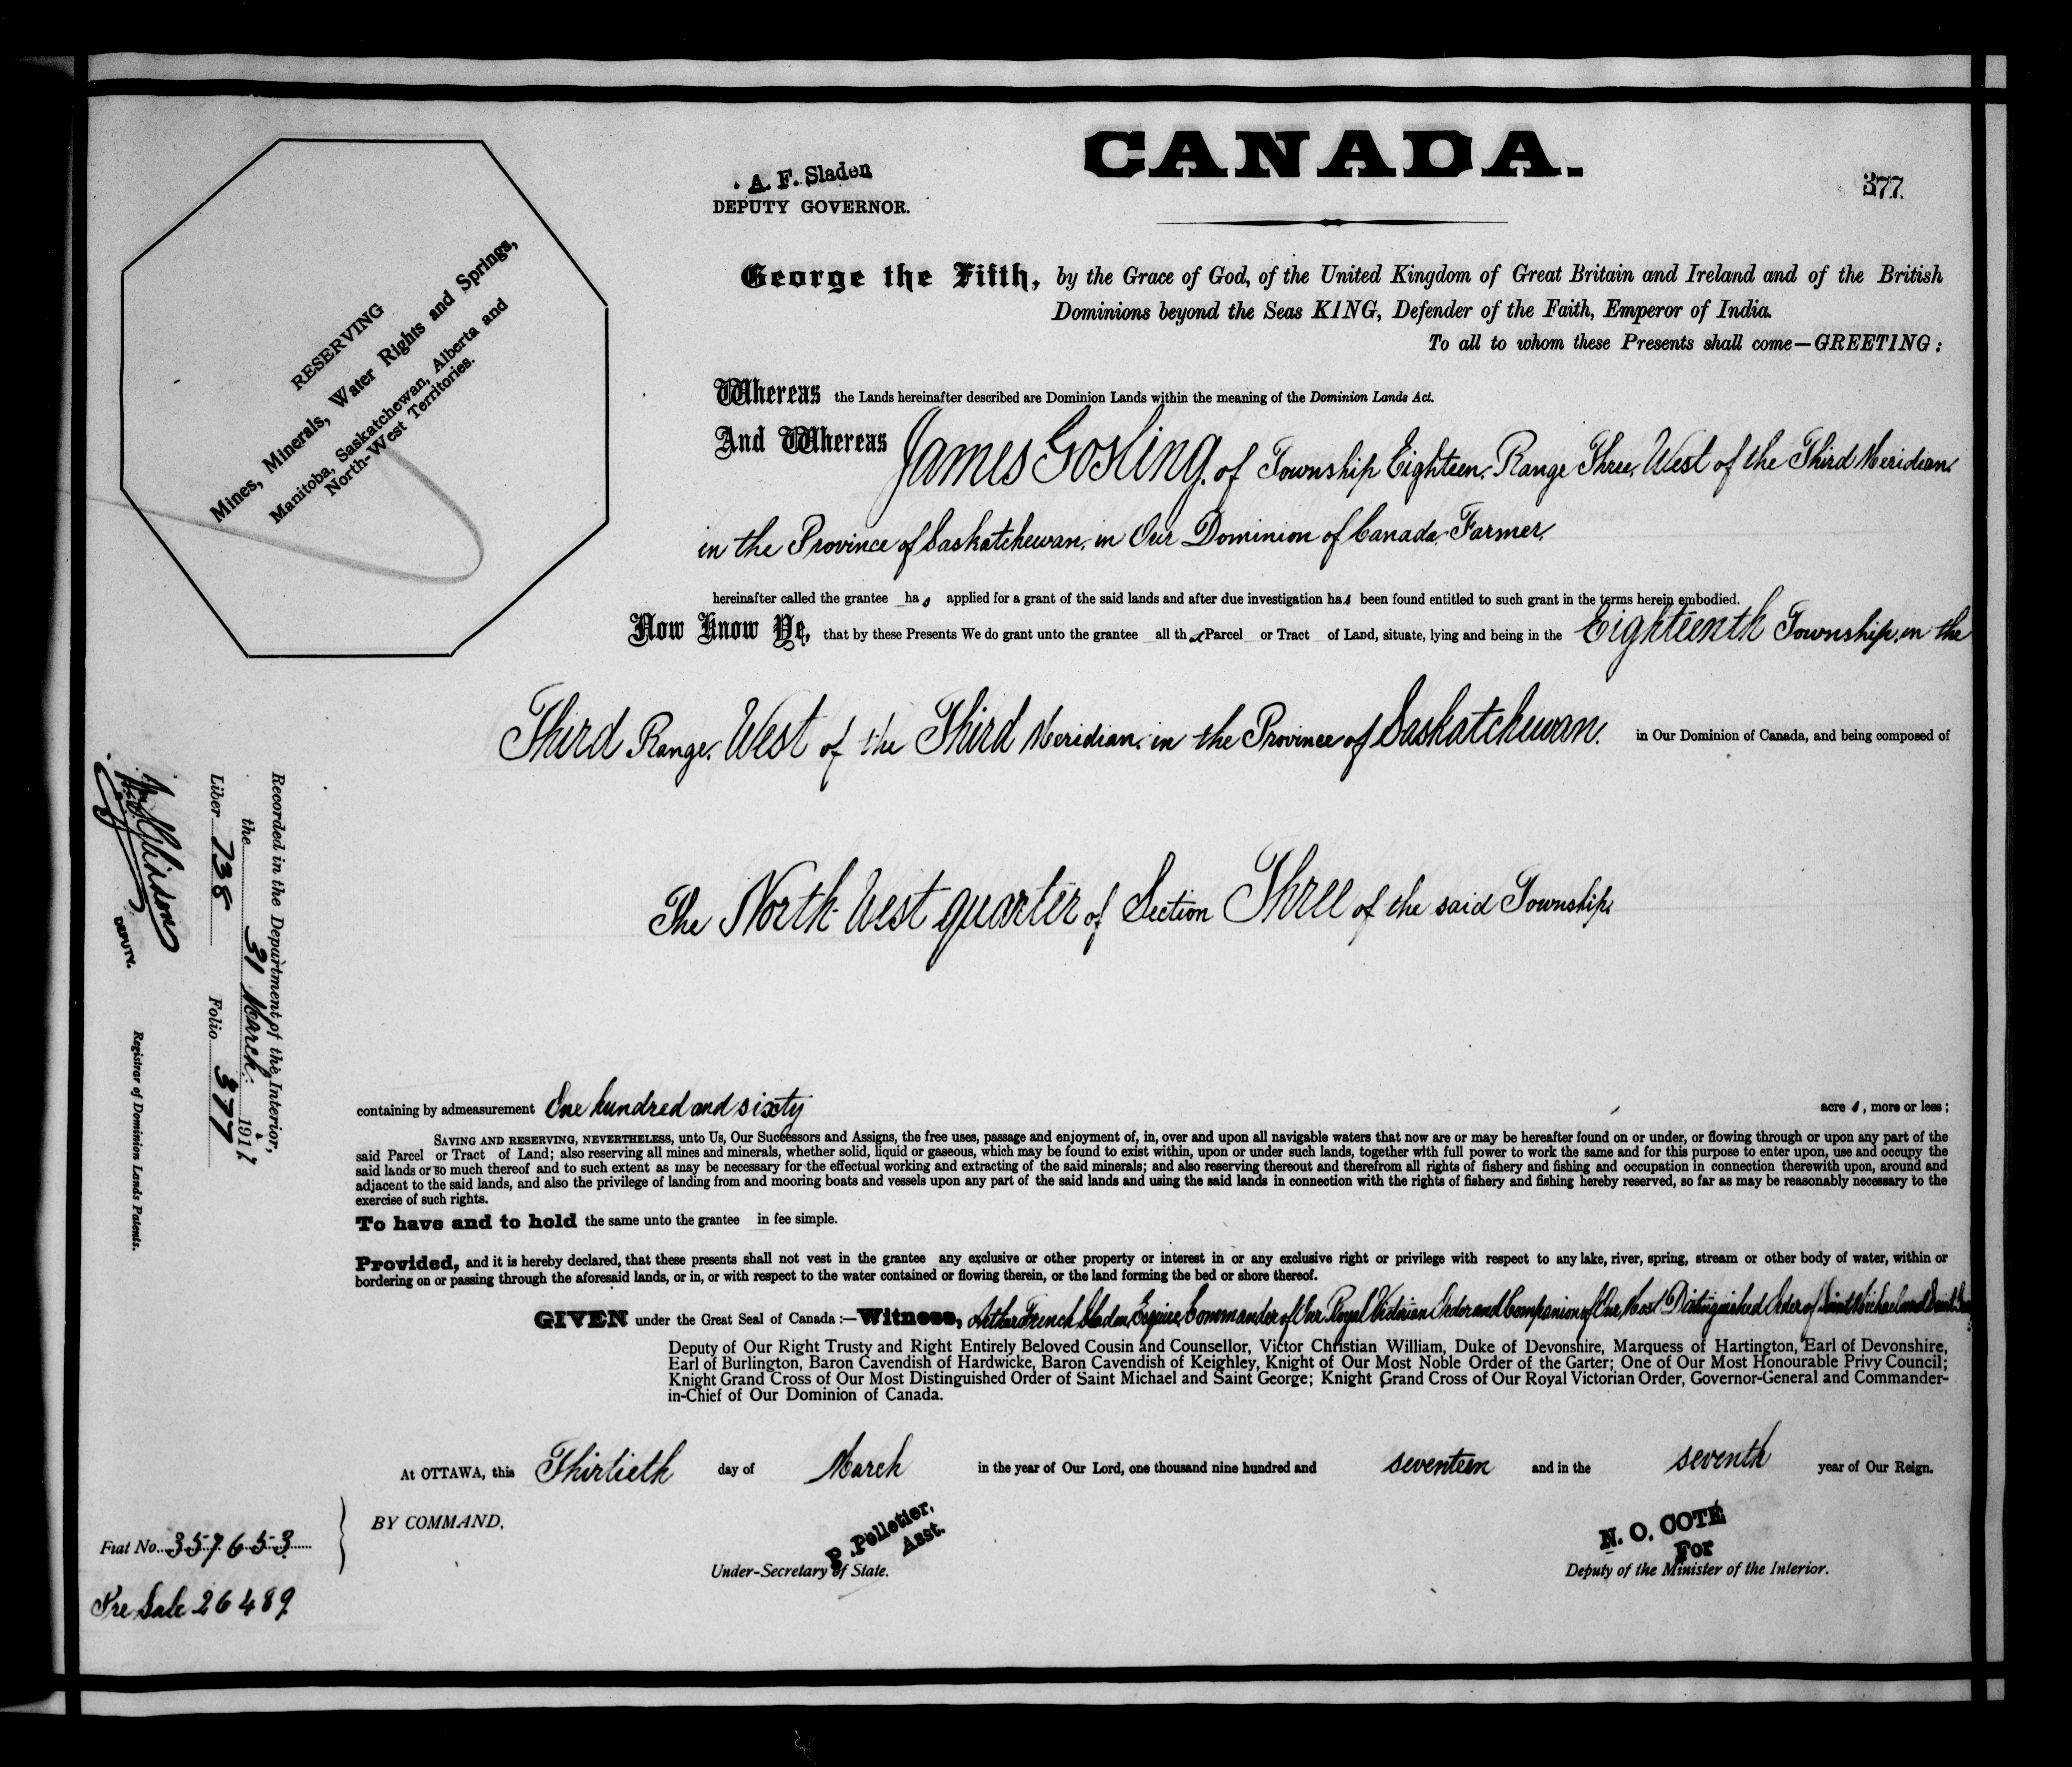 CANADA.
377.
A. F. Sladen
DEPUTY GOVERNOR.
RESERVING
Mines, Minerals, Water Rights and Springs,
Manitoba, Saskatchewan, Alberta and
North-West Territories.
George the Fifth, by the Grace of God, of the United Kingdom of Great Britain and Ireland and of the British
Dominions beyond the Seas KING, Defender of the Faith, Emperor of India.
To all to whom these Presents shall come—GREETING:
Whereas the Lands hereinafter described are Dominion Lands within the meaning of the Dominion Lands Act.
And Whereas James Gosling, of Township Eighteen, Range Three, West of the Third Meridian,
in the Province of Saskatchewan, in Our Dominion of Canada, Farmer,
hereinafter called the grantee has applied for a grant of the said lands and after due investigation has been found entitled to such grant in the terms herein embodied.
Now Know Ye, that by these Presents We do grant unto the grantee all that Parcel or Tract of Land, situate, lying and being in the Eighteenth Township, in the
Third Range, West of the Third Meridian, in the Province of Saskatchewan, in Our Dominion of Canada, and being composed of
The North West quarter of Section Three of the said Township,
containing by admeasurement One hundred and sixty acres, more or less;
SAVING AND RESERVING, NEVERTHELESS, unto Us, Our Successors and Assigns, the free uses, passage and enjoyment of, in, over and upon all navigable waters that now are or may be hereafter found on or under, or flowing through or upon any part of the
said Parcel or Tract of Land; also reserving all mines and minerals, whether solid, liquid or gaseous, which may be found to exist within, upon or under such lands, together with full power to work the same and for this purpose to enter upon, use and occupy the
said lands or so much thereof and to such extent as may be necessary for the effectual working and extracting of the said minerals; and also reserving thereout and therefrom all rights of fishery and fishing and occupation in connection therewith upon, around and
adjacent to the said lands, and also the privilege of landing from and mooring boats and vessels upon any part of the said lands and using the said lands in connection with the rights of fishery and fishing hereby reserved, so far as may be reasonably necessary to the
exercise of such rights.
To have and to hold the same unto the grantee in fee simple.
Provided, and it is hereby declared, that these presents shall not vest in the grantee any exclusive or other property or interest in or any exclusive right or privilege with respect to any lake, river, spring, stream or other body of water, within or
bordering on or passing through the aforesaid lands, or in, or with respect to the water contained or flowing therein, or the land forming the bed or shore thereof.
GIVEN under the Great Seal of Canada:—Witness, Arthur French Sladen, Esquire, Commander of Our Royal Victorian Order and Companion of Our Most Distinguished Order of Saint Michael and Saint
Deputy of Our Right Trusty and Right Entirely Beloved Cousin and Counsellor, Victor Christian William, Duke of Devonshire, Marquess of Hartington, Earl of Devonshire,
Earl of Burlington, Baron Cavendish of Hardwicke, Baron Cavendish of Keighley, Knight of Our Most Noble Order of the Garter; One of Our Most Honourable Privy Council;
Knight Grand Cross of Our Most Distinguished Order of Saint Michael and Saint George; Knight Grand Cross of Our Royal Victorian Order, Governor-General and Commander-
in-Chief of Our Dominion of Canada.
At OTTAWA, this Thirtieth day of March in the year of Our Lord, one thousand nine hundred and seventeen and in the seventh year of Our Reign.
BY COMMAND,
P. Pelletier,
Asst.
Under-Secretary of State.
N. O. COTÉ
For
Deputy of the Minister of the Interior.
Recorded in the Department of the Interior,
the 31 March. 1917
Liber 738 Folio 377
DEPUTY.
Registrar of Dominion Lands Patents.
Fiat No. 357653
Pre Sale 26489